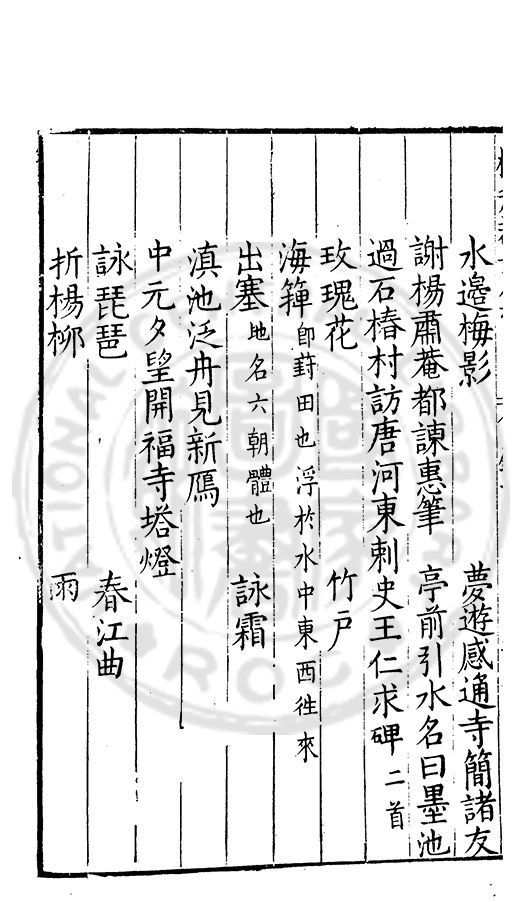 水邊梅影　夢遊感通寺簡諸友
謝楊肅菴都諫惠筆　亭前引水名曰墨池
過石樁村訪唐河東刺史王仁求碑二首
玫瑰花　竹戶
海簰即葑田也浮於水中東西徃來
出塞地名六朝體也　詠霜
滇池泛舟見新鴈
中元夕望開福寺塔燈
詠琵琶　春江曲
折楊柳　雨
NATIONAL CENTRAL